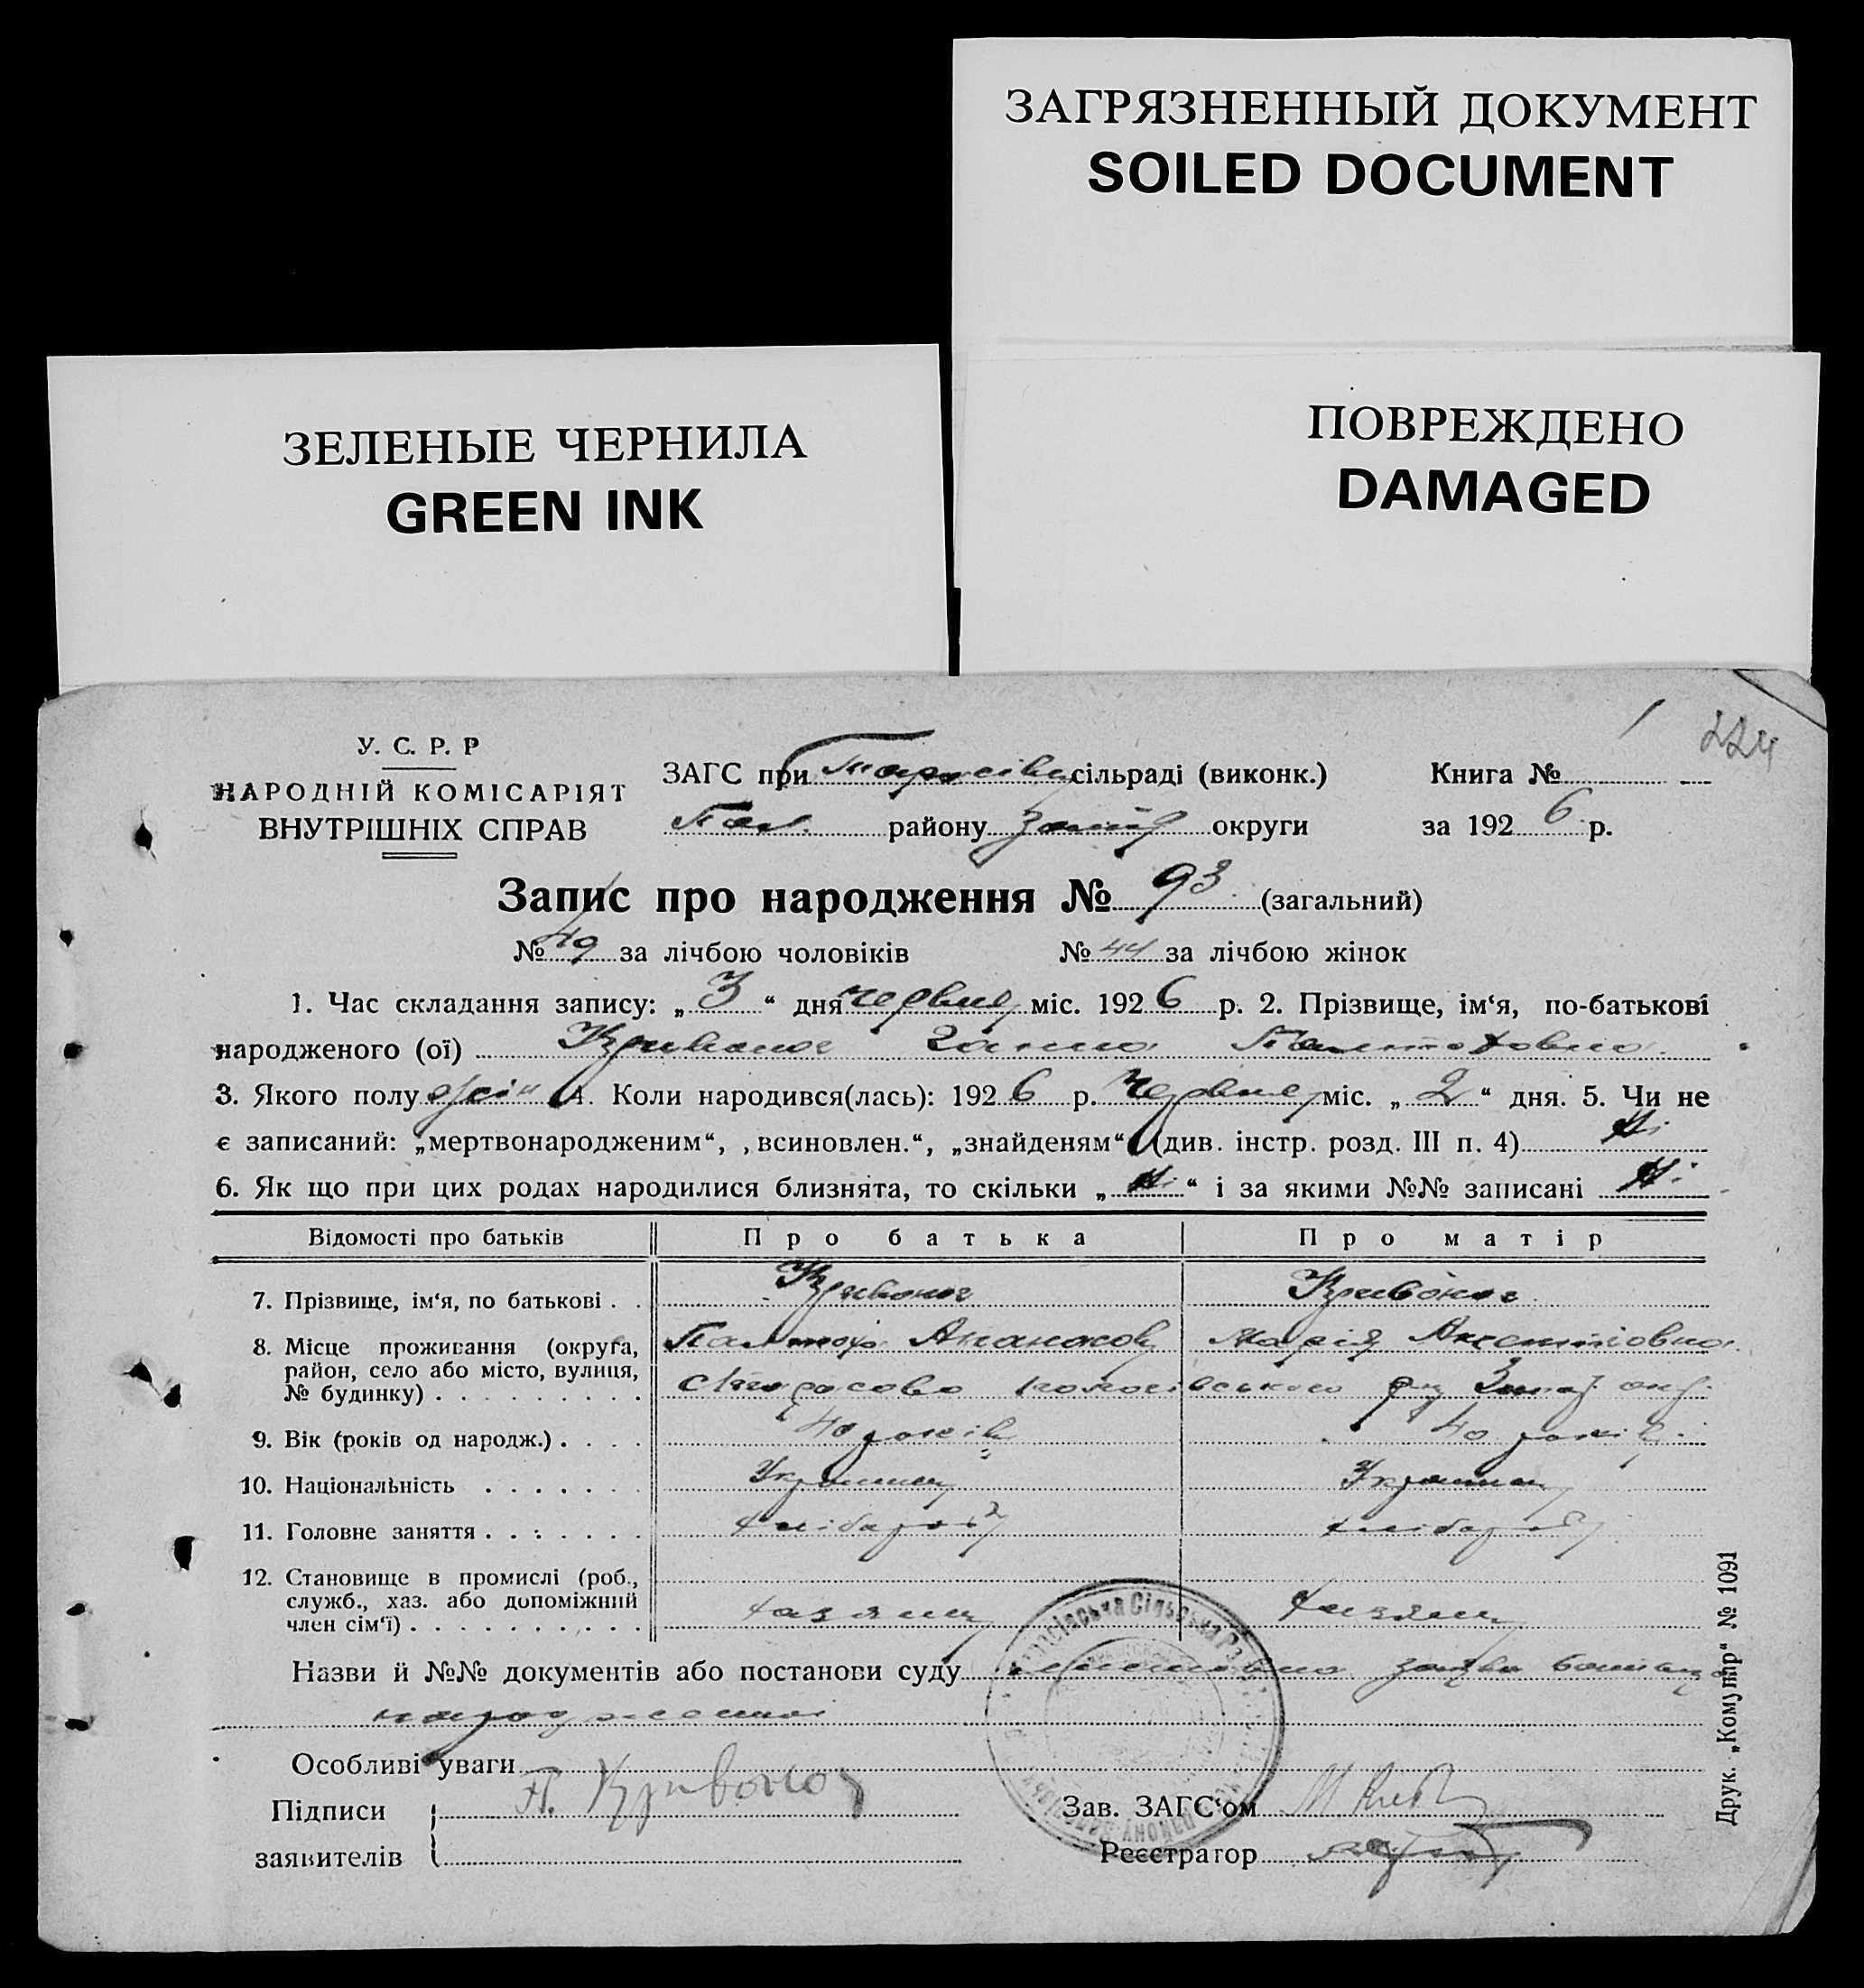 ЗАГРЯЗНЕННЫЙ ДОКУМЕНТ
SOILED DOCUMENT
ЗЕЛЕНЫЕ ЧЕРНИЛА
GREEN INK
ПОВРЕЖДЕНО
DAMAGED
224
У. С. Р. Р
НАРОДНІЙ КОМІСАРІЯТ
ВНУТРІШНІХ СПРАВ
ЗАГС при сільраді (виконк.)
Пол. району округи
Книга №
за 1926 р.
Запис про народження № 93 (загальний)
№ 49 за лічбою чоловіків № 44 за лічбою жінок
1. Час складання запису: „3“ дня червня міс. 1926 р. 2. Прізвище, ім‘я, по-батькові
народженого (ої) Кривоног Ганна
3. Якого полу жін 4. Коли народився(лась): 1926 р. Червня міс. „2“ дня. 5. Чи не
є записаний: „мертвонародженим“, „всиновлен.“, „знайденям“ (див. інстр. розд. III п. 4) Ні
6. Як що при цих родах народилися близнята, то скільки „Ні“ і за якими №№ записані Ні
Відомості про батьків Про батька Про матір
7. Прізвище, ім‘я, по батькові . . Кривоног Кривоног
8. Місце проживання (округа, Апанасов Марія
район, село або місто, вулиця,
№ будинку) . . . . . . . . .
9. Вік (років од народж.) . . . . 40 років 40 років
10. Національність . . . . . . . Українец Українец
11. Головне заняття . . . . . . . хлібороб хлібороб
12. Становище в промислі (роб.,
служб., хаз. або допоміжний
член сім‘ї) . . . . . . . . . . хазяин хазяин
Назви й №№ документів або постанови суду заява
Особливі уваги
Підписи П. Кривоно Зав. ЗАГС‘ом
заявителів Реєстратор
Друк. „Комунар“ № 1091